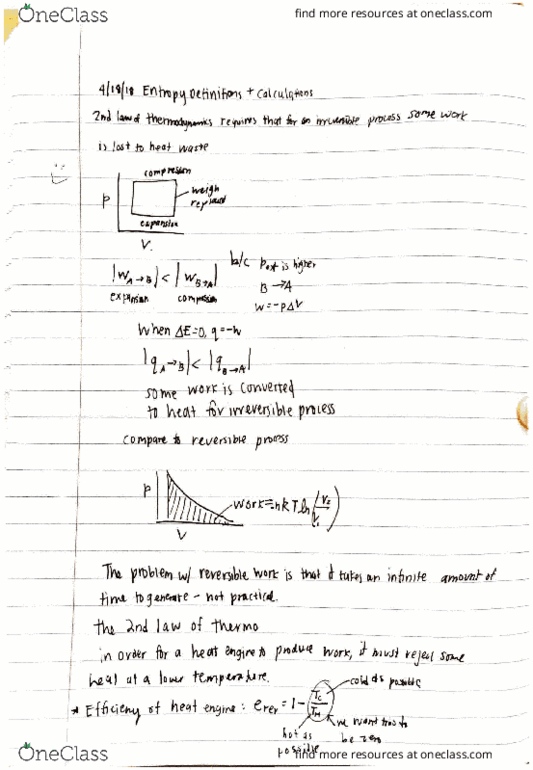 OneClass
find more resources at oneclass.com
4/18/18 Entropy Definitions + Calculations
2nd law of thermodynamics requires that for an irreversible process some work
is lost to heat waste
compression
weigh
P
expansion
V.
|w A→B| < |w B→A|
expansion compression
b/c Pext is higher
B→A
w=-pΔV
When ΔE=0, q=-w
|q A→B| < |q B→A|
some work is converted
to heat for irreversible process
compare to reversible process
P
work=-nRT ln(V2/V1)
V
The problem w/ reversible work is that it takes an infinite amount of
time to generate - not practical.
the 2nd law of thermo
in order for a heat engine to produce work, it must reject some
heat at a lower temperature.
cold as possible
* Efficieny of heat engine: erev = 1 - Tc/TH
we want this to
be zero
hot as
possible
OneClass
find more resources at oneclass.com